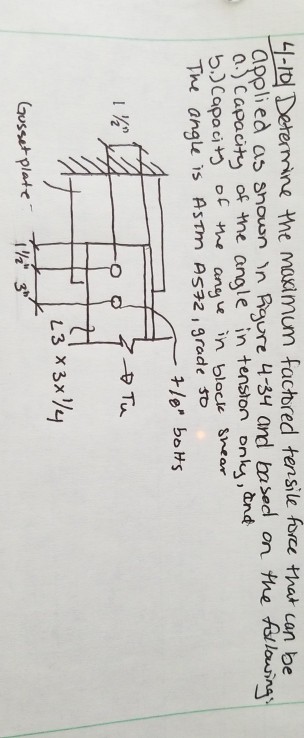 4-10 Determine the maximum factored tensile force that can be
applied as shown in Figure 4-34 and based on the following:
a.) Capacity of the angle in tension only, and
b.) Capacity of the angle in block shear
The angle is ASTM A572, grade 50
7/8" bolts
1 1/2"
Tu
L3 x 3 x 1/4
1 1/2" 3"
Gusset plate